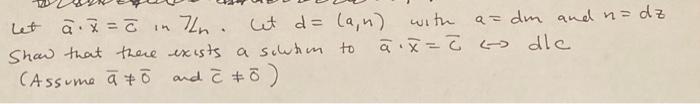 Let ā·x̄ = c̄ in ℤn. Let d = (a,n) with a = dm and n = dz
Show that there exists a solution to ā·x̄ = c̄ ↔ d|c
(Assume ā ≠ ō and c̄ ≠ ō)